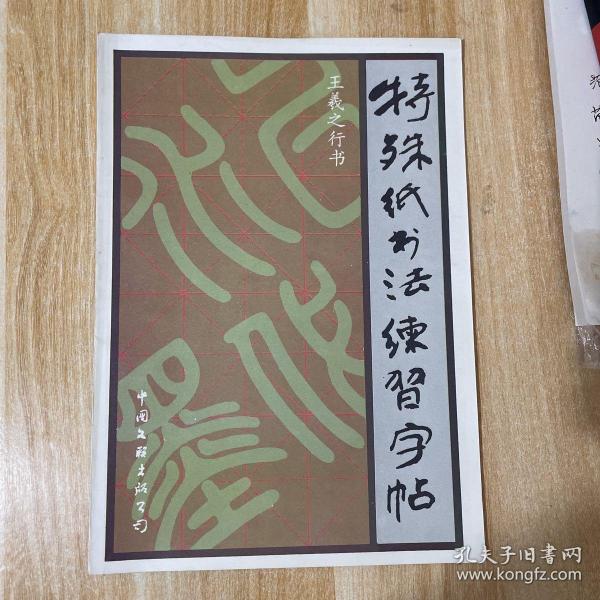 特殊纸书法練習字帖
王羲之行书
中国文联出版公司
孔夫子旧書网
www.kongfz.com